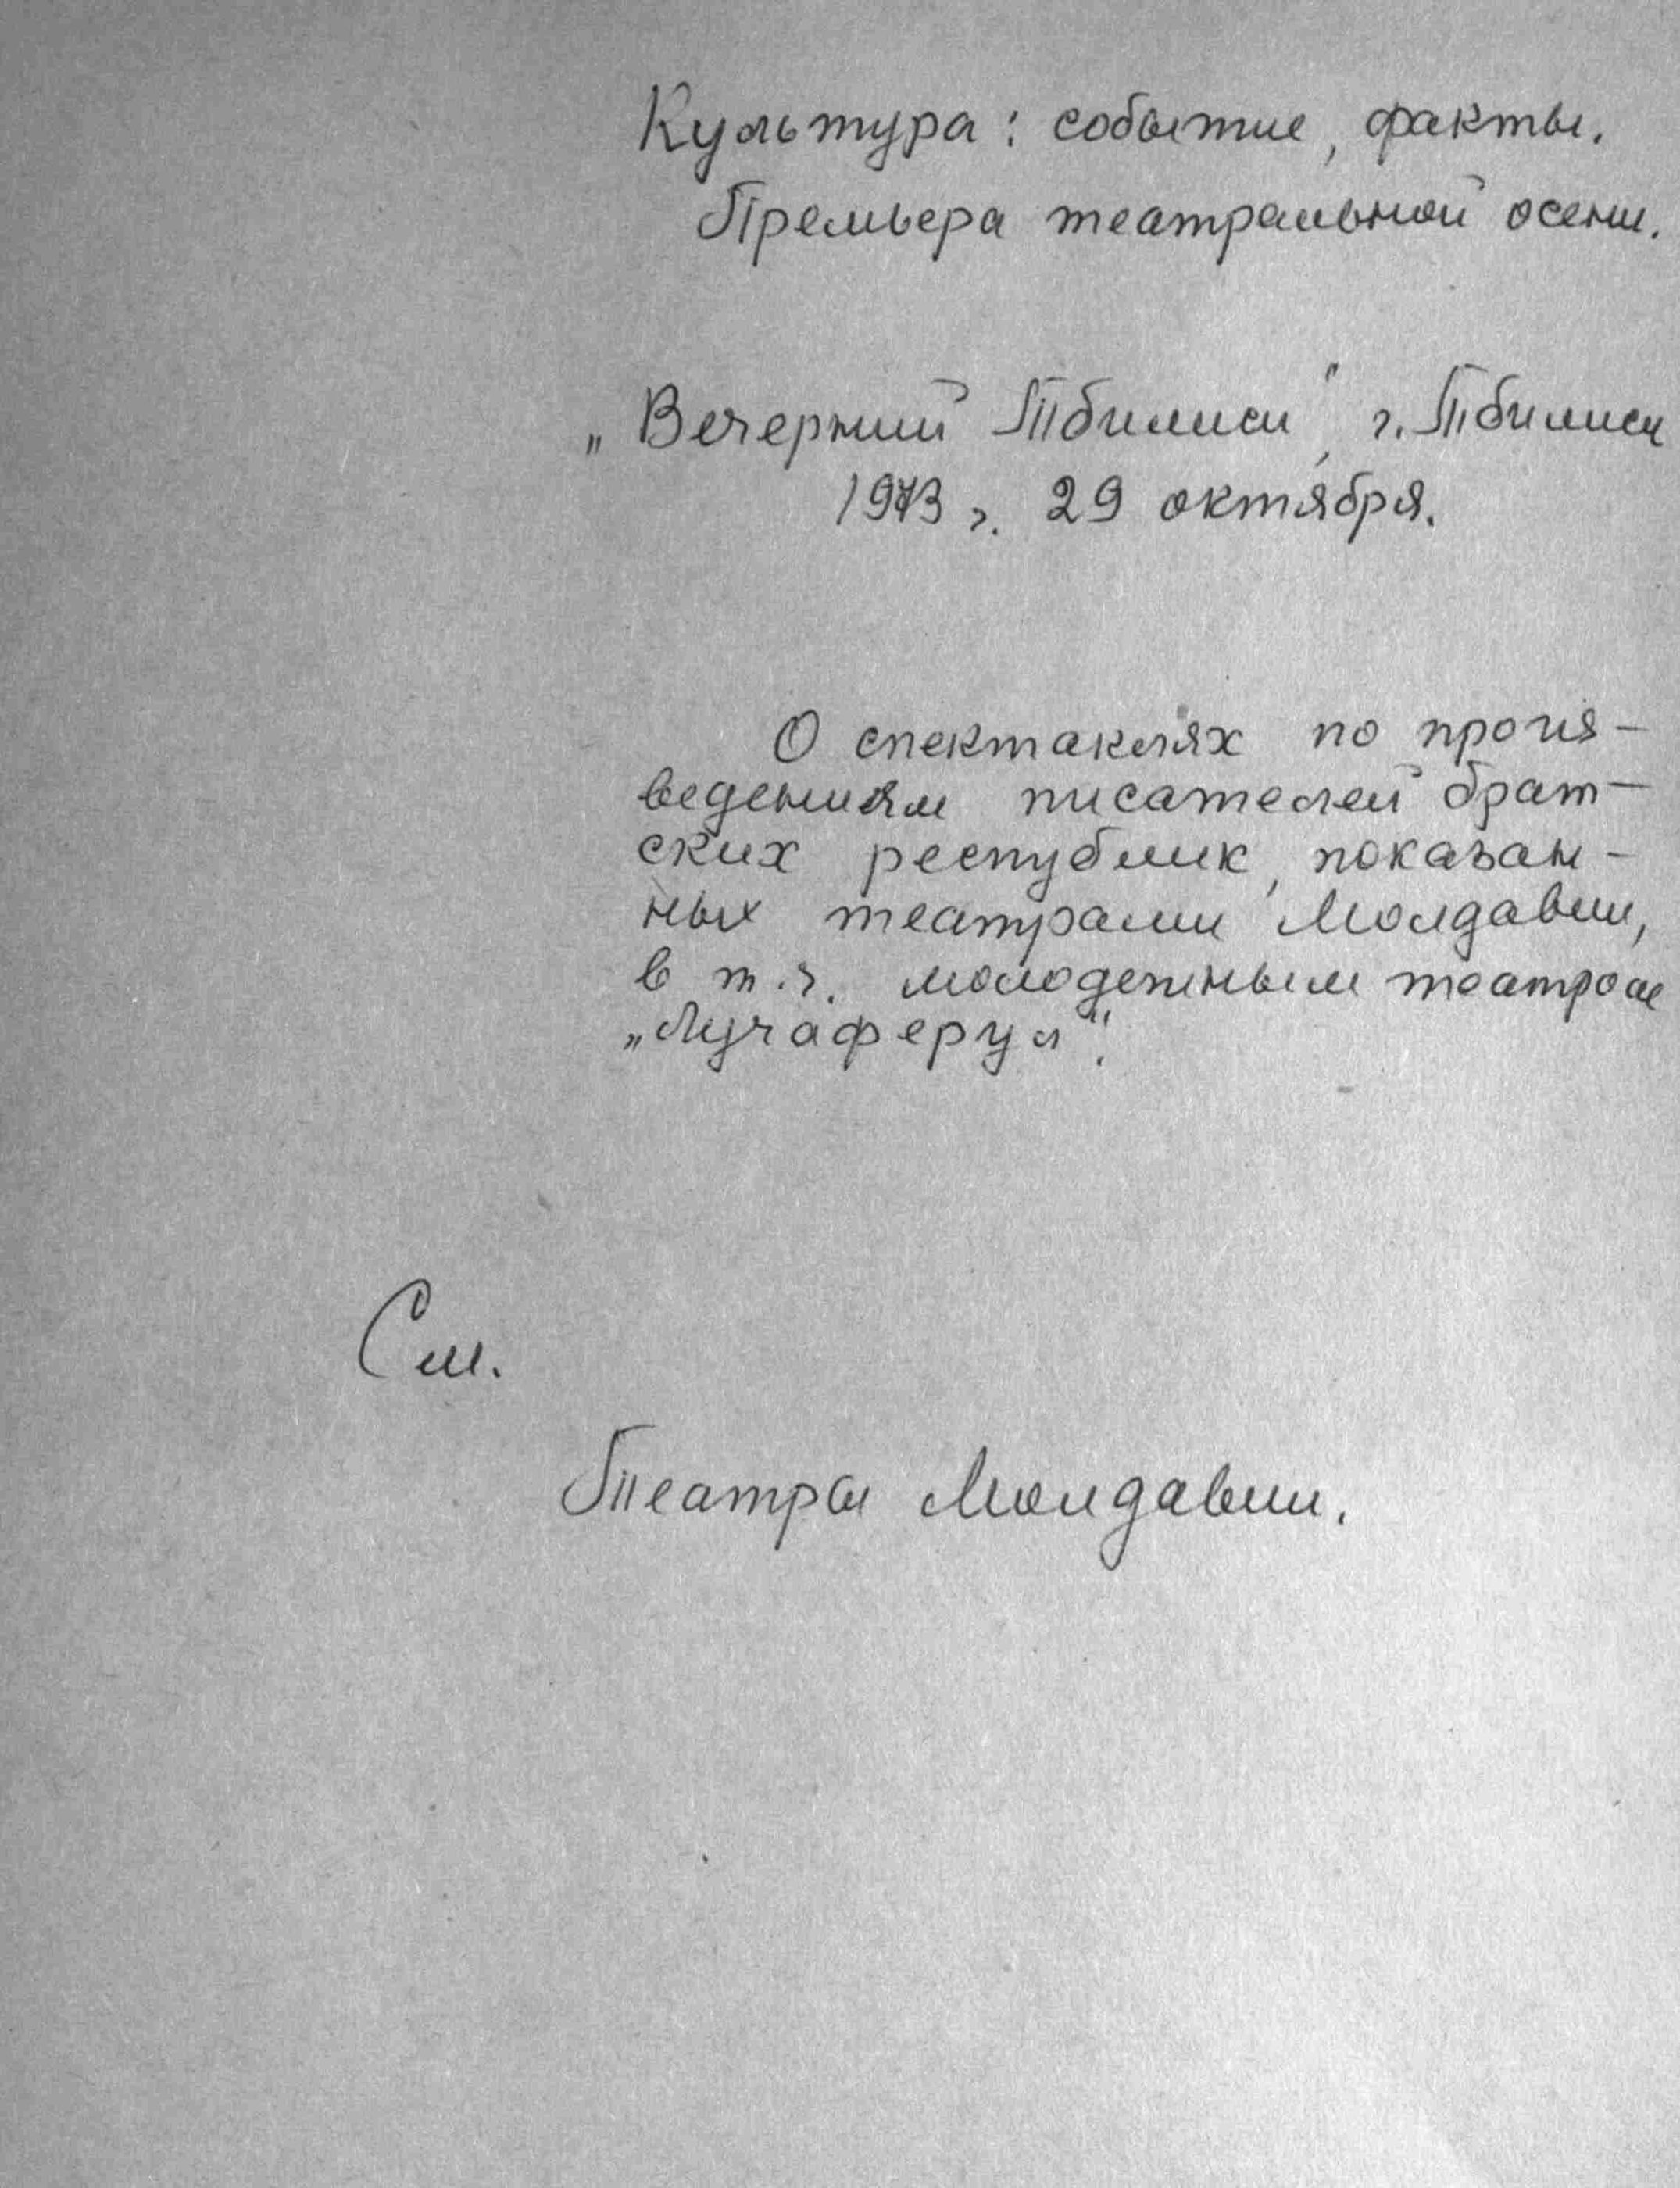 Культура: событие, факты.
Премьера театральной осени.
„Вечерний Тбилиси", г. Тбилиси
1973 г. 29 октября.
О спектаклях по произ-
ведениям писателей брат-
ских республик, показан-
ных театрами Молдавии,
в т.ч. молодежным театром
„Лучаферул".
См.
Театры Молдавии.